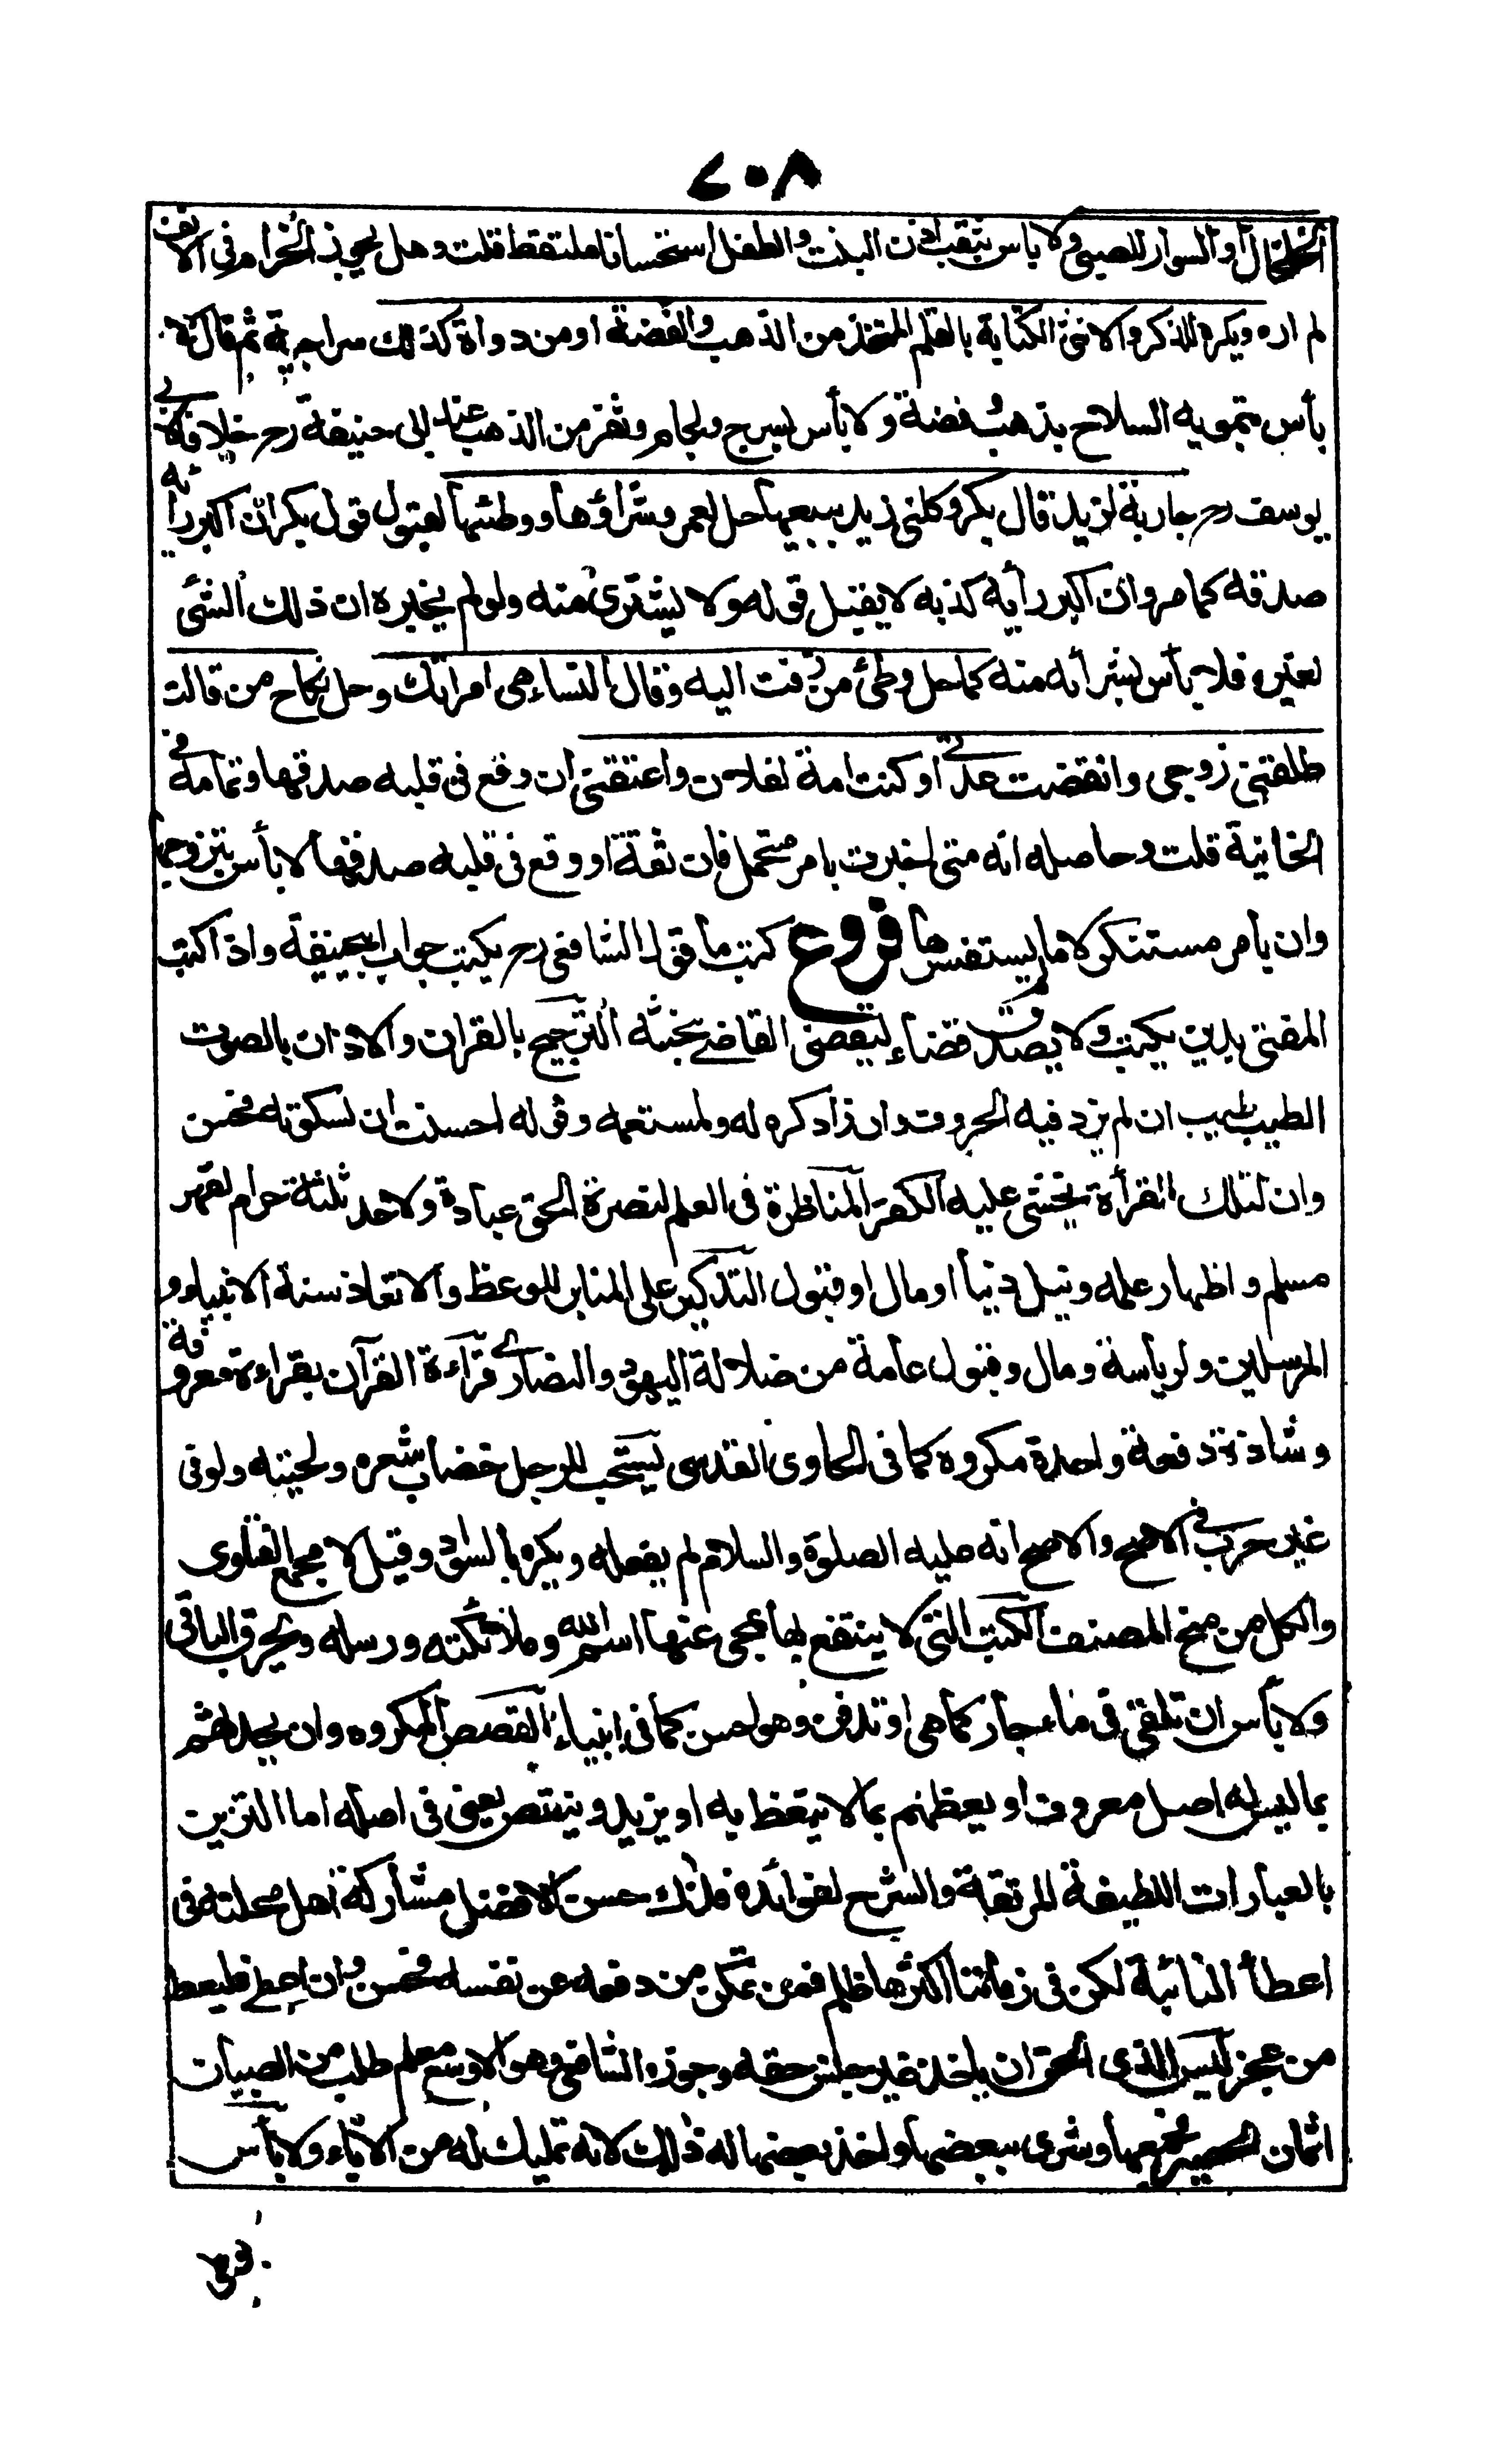 ٧٠٨
الخلخال او السوار للصبي ولا باس بثقب اذن البنت والطفل استحسانا ملتقط قلت وهل يجوز الخزام في الانف
لم اره ويكره للذكر والانثى الكتابة بالقلم المتخذ من الذهب والفضة او من دواة كذلك سراجية ثم قال لا
بأس بتمويه السلاح بذهب وفضة ولا بأس بسرج ولجام وثفر من الذهب عند ابى حنيفة رح خلافا لابي
يوسف رح جارية لزيد قال بكر وكلنى زيد ببيعها حل لعمر وشراؤها ووطئها لقبول قول بكر ان اكبر رأيه
صدقه كما مر وان اكبر رأيه كذبه لا يقبل قوله ولا يشترى منه ولو لم يخبره ان ذلك الشئ
لغيره فلا بأس بشرائه منه كما حل وطئ من زفت اليه وقال النساء هى امرأتك وحل نكاح من قالت
طلقنى زوجى وانقضت عدتي او كنت امة لفلان واعتقنى ان وقع فى قلبه صدقها وتمامه في
الخانية قلت وحاصله انه متى اخبرت بامر محتمل فان ثقة او وقع فى قلبه صدقها لا بأس بتزوجها
وان بامر مستنكر لا ما لم يستفسرها فروع كتب ما قول الشافعى رح يكتب جواب ابيحنيفة واذا كتب
المفتى يدين يكتب ولا يصدق قضاء ليقضى القاضي بحنثه الترجيع بالقران والاذان بالصوت
الطيب طيب ان لم يزد فيه الحروف وان زاد كره له ولمستمعه وقوله احسنت ان لسكوته فحسن
وان لتلك القرأة يخشى عليه الكفر المناظرة فى العلم لنصرة الحق عبادة ولاحد ثلثة حرام لقهر
مسلم واظهار علمه ونيل دنيا او مال او قبول التذكير على المنابر للوعظ والاتعاظ سنة الانبياء و
المرسلين ولرياسة ومال وقبول عامة من ضلالة اليهود والنصارى قراءة القرآن بقراءة معروفة
وشاذة دفعة واحدة مكروه كما فى الحاوى القدسى يستحب للرجل خضاب شعره ولحيته ولو فى
غير حرب في الاصح والاصح انه عليه الصلوة والسلام لم يفعله ويكره بالسواد وقيل لا مجمع الفتاوى
والكل من منح المصنف الكتب التى لا ينتفع بها يمحى عنها اسم الله وملائكته ورسله ويحرق الباقى
ولا بأس ان تلقى فى ماء جار كما هى او تدفن وهو احسن كما فى انبياء القصص المكروه ان يحدثهم
بما ليس له اصل معروف او يعظهم بما لا يتعظ به او يزيد وينقص يعنى فى اصله اما التزيين
بالعبارات اللطيفة المرققة والشرح لفوائده فذلك حسن الافضل مشاركة اهل محلته فى
اعطاء النائبة لكن فى زماننا اكثرها ظلم فمن تمكن من دفعه عن نفسه فحسن وان اعطى فليعط
من عجز ليس لذى الحق ان ياخذ غير جنس حقه وجوزه الشافعى وهو الاوسع معلم طلب من الصبيان
اثمان الحصير فجمعها وشرى ببعضها واخذ بعضها له ذلك لانه تمليك له من الاباء ولا بأس